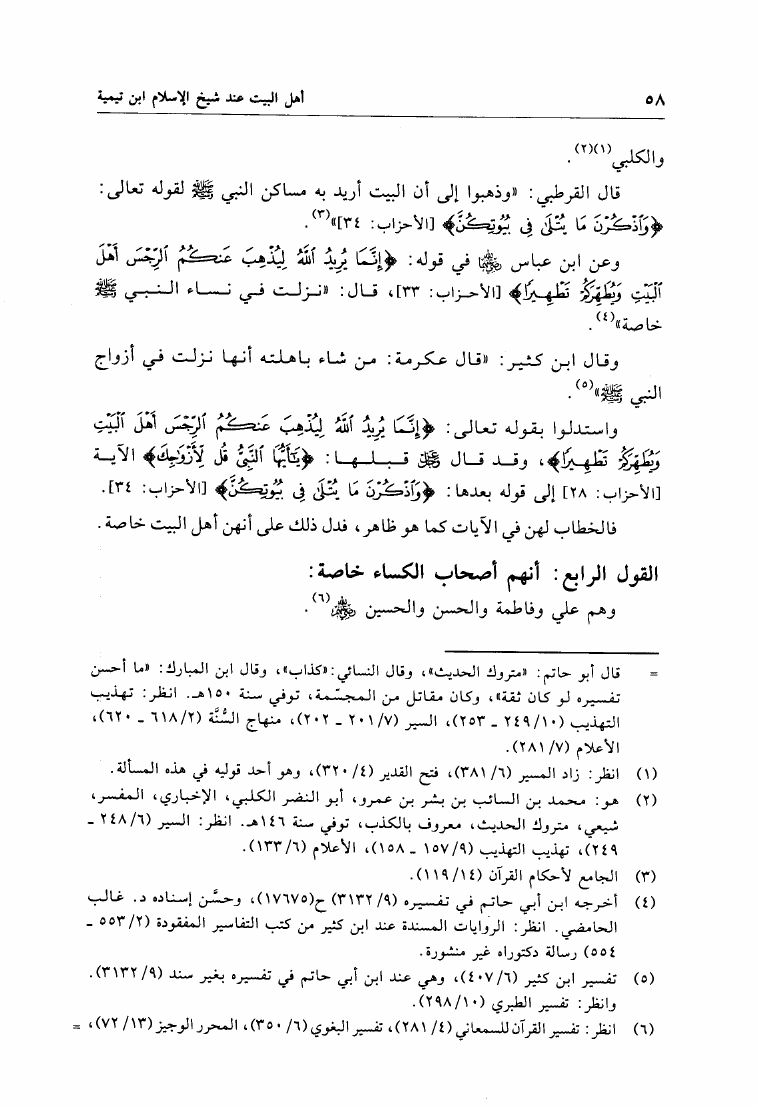 ٥٨ أهل البيت عند شيخ الإسلام ابن تيمية
والكلبي(١)(٢).
قال القرطبي: «وذهبوا إلى أن البيت أريد به مساكن النبي ﷺ لقوله تعالى:
﴿وَٱذْكُرْنَ مَا يُتْلَىٰ فِى بُيُوتِكُنَّ﴾ [الأحزاب: ٣٤]»(٣).
وعن ابن عباس في قوله: ﴿إِنَّمَا يُرِيدُ ٱللَّهُ لِيُذْهِبَ عَنكُمُ ٱلرِّجْسَ أَهْلَ
ٱلْبَيْتِ وَيُطَهِّرَكُمْ تَطْهِيرًا﴾ [الأحزاب: ٣٣]، قال: «نـزلـت فـي نـسـاء الـنـبـي ﷺ
خاصة»(٤).
وقال ابن كثير: «قال عكرمة: من شاء باهلته أنها نزلت في أزواج
النبي ﷺ»(٥).
واستدلوا بقوله تعالى: ﴿إِنَّمَا يُرِيدُ ٱللَّهُ لِيُذْهِبَ عَنكُمُ ٱلرِّجْسَ أَهْلَ ٱلْبَيْتِ
وَيُطَهِّرَكُمْ تَطْهِيرًا﴾، وقد قال ﷻ قبلها: ﴿يَٰٓأَيُّهَا ٱلنَّبِىُّ قُل لِّأَزْوَٰجِكَ﴾ الآية
[الأحزاب: ٢٨] إلى قوله بعدها: ﴿وَٱذْكُرْنَ مَا يُتْلَىٰ فِى بُيُوتِكُنَّ﴾ [الأحزاب: ٣٤].
فالخطاب لهن في الآيات كما هو ظاهر، فدل ذلك على أنهن أهل البيت خاصة.
القول الرابع: أنهم أصحاب الكساء خاصة:
وهم علي وفاطمة والحسن والحسين (٦).
= قال أبو حاتم: «متروك الحديث»، وقال النسائي: «كذاب»، وقال ابن المبارك: «ما أحسن
تفسيره لو كان ثقة»، وكان مقاتل من المجسّمة، توفي سنة ١٥٠هـ. انظر: تهذيب
التهذيب (١٠/ ٢٤٩ ـ ٢٥٣)، السير (٧/ ٢٠١ ـ ٢٠٢)، منهاج السُّنَّة (٢/ ٦١٨ ـ ٦٢٠)،
الأعلام (٧/ ٢٨١).
(١) انظر: زاد المسير (٦/ ٣٨١)، فتح القدير (٤/ ٣٢٠)، وهو أحد قوليه في هذه المسألة.
(٢) هو: محمد بن السائب بن بشر بن عمرو، أبو النضر الكلبي، الإخباري، المفسر،
شيعي، متروك الحديث، معروف بالكذب، توفي سنة ١٤٦هـ. انظر: السير (٦/ ٢٤٨ ـ
٢٤٩)، تهذيب التهذيب (٩/ ١٥٧ ـ ١٥٨)، الأعلام (٦/ ١٣٣).
(٣) الجامع لأحكام القرآن (١٤/ ١١٩).
(٤) أخرجه ابن أبي حاتم في تفسيره (٩/ ٣١٣٢) ح(١٧٦٧٥)، وحسَّن إسناده د. غالب
الحامضي. انظر: الروايات المسندة عند ابن كثير من كتب التفاسير المفقودة (٢/ ٥٥٣ ـ
٥٥٤) رسالة دكتوراه غير منشورة.
(٥) تفسير ابن كثير (٦/ ٤٠٧)، وهي عند ابن أبي حاتم في تفسيره بغير سند (٩/ ٣١٣٢).
وانظر: تفسير الطبري (١٠/ ٢٩٨).
(٦) انظر: تفسير القرآن للسمعاني (٤/ ٢٨١)، تفسير البغوي (٦/ ٣٥٠)، المحرر الوجيز (١٣/ ٧٢)، =